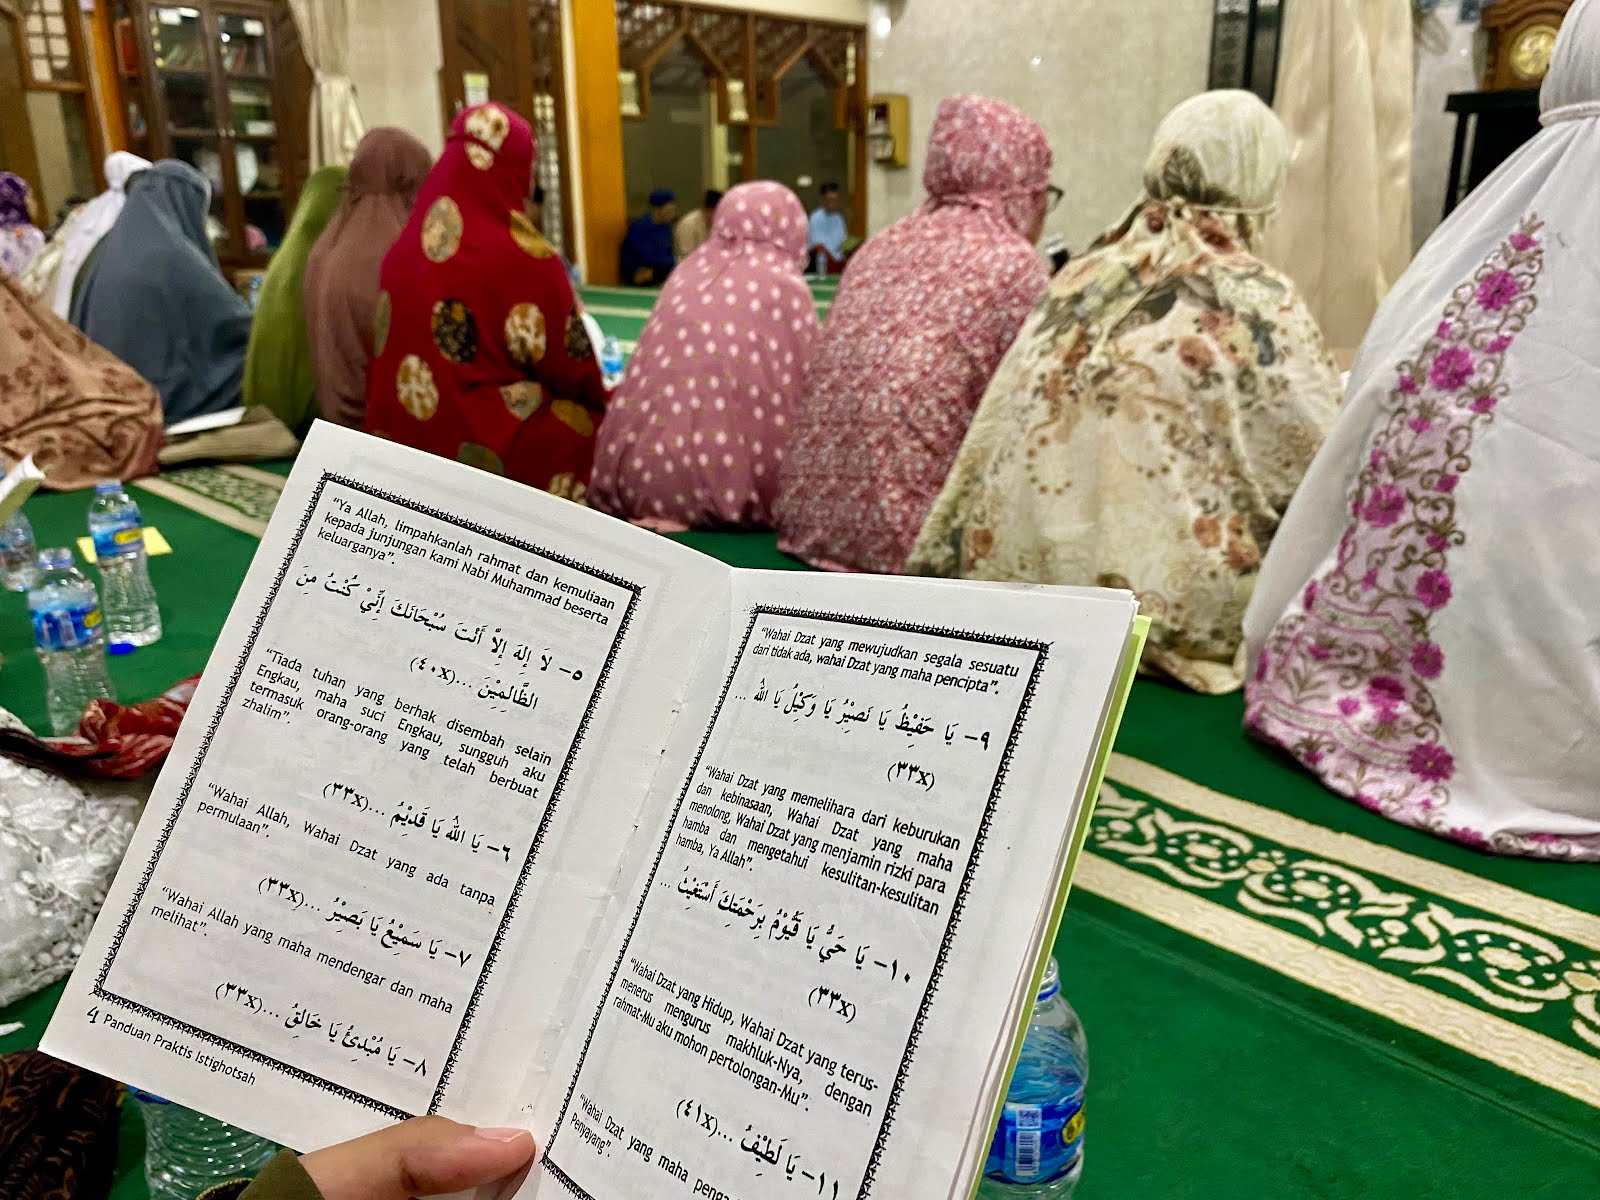 "Ya Allah, limpahkanlah rahmat dan kemuliaan
kepada junjungan kami Nabi Muhammad beserta
keluarganya".
٥- لاَ إِلهَ إِلاَّ أَنْتَ سُبْحَانَكَ إِنِّيْ كُنْتُ مِنَ
الظَّالِمِيْنَ ...(٤٠x)
"Tiada tuhan yang berhak disembah selain
Engkau, maha suci Engkau, sungguh aku
termasuk orang-orang yang telah berbuat
zhalim".
٦- يَا اَللهُ يَا قَدِيْمُ ...(٣٣x)
"Wahai Allah, Wahai Dzat yang ada tanpa
permulaan".
٧- يَا سَمِيْعُ يَا بَصِيْرُ ...(٣٣x)
"Wahai Allah yang maha mendengar dan maha
melihat".
٨- يَا مُبْدِئُ يَا خَالِقُ ...(٣٣x)
4 Panduan Praktis Istighotsah
"Wahai Dzat yang mewujudkan segala sesuatu
dari tidak ada, wahai Dzat yang maha pencipta".
٩- يَا حَفِيْظُ يَا نَصِيْرُ يَا وَكِيْلُ يَا اَللهُ ...
(٣٣x)
"Wahai Dzat yang memelihara dari keburukan
dan kebinasaan, Wahai Dzat yang maha
menolong, Wahai Dzat yang menjamin rizki para
hamba dan mengetahui kesulitan-kesulitan
hamba, Ya Allah".
١٠- يَا حَيُّ يَا قَيُّوْمُ بِرَحْمَتِكَ أَسْتَغِيْثُ ...
(٣٣x)
"Wahai Dzat yang Hidup, Wahai Dzat yang terus-
menerus mengurus makhluk-Nya, dengan
rahmat-Mu aku mohon pertolongan-Mu".
١١- يَا لَطِيْفُ ...(٤١x)
"Wahai Dzat yang maha
Penyayang".